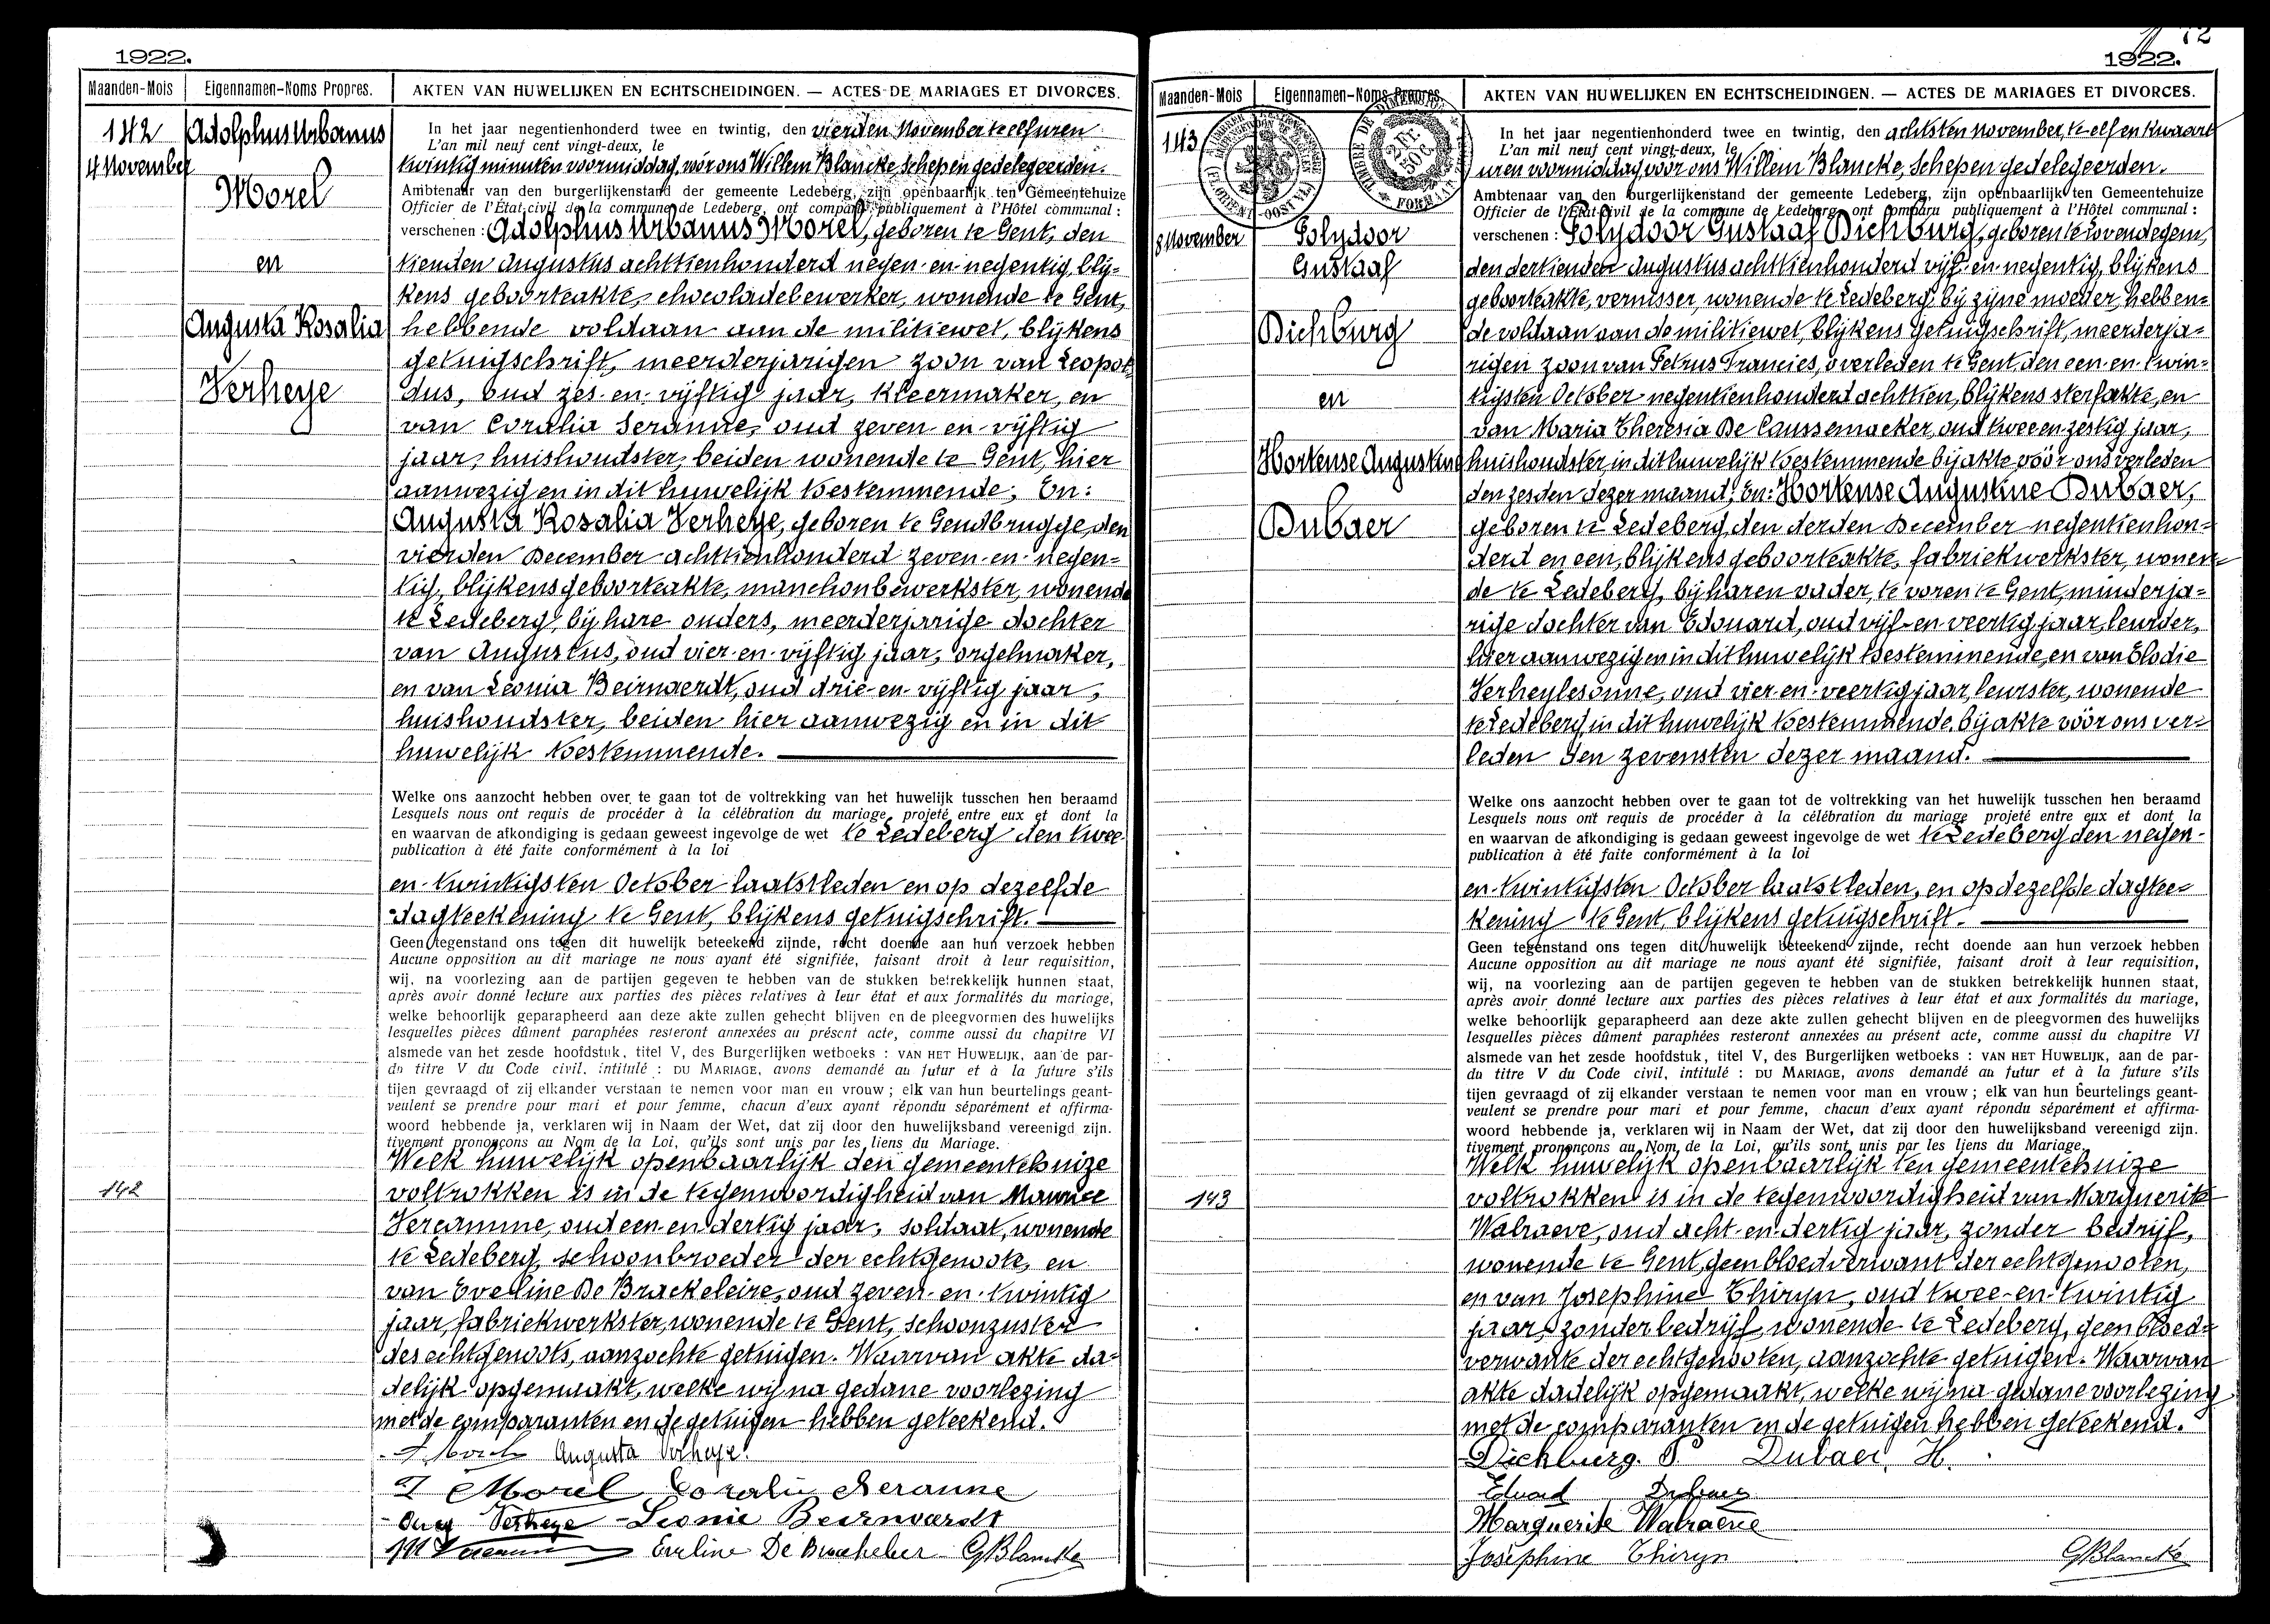 1922.
Maanden-Mois
Eigennamen-Noms Propres.
AKTEN VAN HUWELIJKEN EN ECHTSCHEIDINGEN. — ACTES DE MARIAGES ET DIVORCES.
142
4 November
Adolphus Urbanus
Morel
en
Augusta Rosalia
Verheye
In het jaar negentienhonderd twee en twintig, den vierden November te elf uren
L'an mil neuf cent vingt-deux, le
twintig minuten voormiddag, vóór ons Willem Blancke, Schepen gedelegeerden.
Ambtenaar van den burgerlijkenstand der gemeente Ledeberg, zijn openbaarlijk ten Gemeentehuize
Officier de l'État-civil de la commune de Ledeberg, ont comparu publiquement à l'Hôtel communal :
verschenen : Adolphus Urbanus Morel, geboren te Gent, den
tienden Augustus achttienhonderd negen-en-negentig, blij-
kens geboorteakte, chocoladebewerker, wonende te Gent,
hebbende voldaan aan de militiewet, blijkens
getuigschrift, meerderjarigen zoon van Leopol-
dus, oud zes-en-vijftig jaar, kleermaker, en
van Coralia Seranne, oud zeven-en-vijftig
jaar, huishoudster, beiden wonende te Gent, hier
aanwezig en in dit huwelijk toestemmende; En:
Augusta Rosalia Verheye, geboren te Gendbrugge, den
vierden December achttienhonderd zeven-en-negen-
tig, blijkens geboorteakte, manchonbewerkster, wonende
te Ledeberg, bij hare ouders, meerderjarige dochter
van Augustus, oud vier-en-vijftig jaar, orgelmaker,
en van Leonia Beirnaerdt, oud drie-en-vijftig jaar,
huishoudster, beiden hier aanwezig en in dit
huwelijk toestemmende.
Welke ons aanzocht hebben over te gaan tot de voltrekking van het huwelijk tusschen hen beraamd
Lesquels nous ont requis de procéder à la célébration du mariage projeté entre eux et dont la
en waarvan de afkondiging is gedaan geweest ingevolge de wet te Ledeberg den twee-
publication à été faite conformément à la loi
en-twintigsten October laatstleden en op dezelfde
dagteekening te Gent, blijkens getuigschrift.
Geen tegenstand ons tegen dit huwelijk beteekend zijnde, recht doende aan hun verzoek hebben
Aucune opposition au dit mariage ne nous ayant été signifiée, faisant droit à leur requisition,
wij, na voorlezing aan de partijen gegeven te hebben van de stukken betrekkelijk hunnen staat,
après avoir donné lecture aux parties des pièces relatives à leur état et aux formalités du mariage,
welke behoorlijk geparapheerd aan deze akte zullen gehecht blijven en de pleegvormen des huwelijks
lesquelles pièces dûment paraphées resteront annexées au présent acte, comme aussi du chapitre VI
alsmede van het zesde hoofdstuk, titel V, des Burgerlijken wetboeks : VAN HET HUWELIJK, aan de par-
du titre V du Code civil, intitulé : DU MARIAGE, avons demandé au futur et à la future s'ils
tijen gevraagd of zij elkander verstaan te nemen voor man en vrouw ; elk van hun beurtelings geant-
veulent se prendre pour mari et pour femme, chacun d'eux ayant répondu séparément et affirma-
woord hebbende ja, verklaren wij in Naam der Wet, dat zij door den huwelijksband vereenigd zijn.
tivement prononçons au Nom de la Loi, qu'ils sont unis par les liens du Mariage.
Welk huwelijk openbaarlijk den gemeentehuize
142
voltrokken is in de tegenwoordigheid van Maurice
Vereamme, oud een-en-dertig jaar, soldaat, wonende
te Ledeberg, schoonbroeder der echtgenoote, en
van Eveline De Brackeleire, oud zeven-en-twintig
jaar, fabriekwerkster, wonende te Gent, schoonzuster
des echtgenoots, aanzochte getuigen. Waarvan akte da-
delijk opgemaakt, welke wij na gedane voorlezing
met de comparanten en de getuigen hebben geteekend.
A Morel Augusta Verheye.
Morel Coralie Seranne
Aug Verheye Leonie Beirnaerdt
M Vereamme Eveline De Brackeleer GBlancke
72
1922.
Maanden-Mois
Eigennamen-Noms Propres
AKTEN VAN HUWELIJKEN EN ECHTSCHEIDINGEN. — ACTES DE MARIAGES ET DIVORCES.
TIMBRE DE DIMENSION
2 Fr. 50 C.
143
8 November
Polydoor
Gustaaf
Dichburg
en
Hortense Augustine
Dubaer
In het jaar negentienhonderd twee en twintig, den achtsten november, te elf en kwaart
L'an mil neuf cent vingt-deux, le
uren voormiddag, vóór ons Willem Blancke, Schepen gedelegeerden.
Ambtenaar van den burgerlijkenstand der gemeente Ledeberg, zijn openbaarlijk ten Gemeentehuize
Officier de l'État-civil de la commune de Ledeberg, ont comparu publiquement à l'Hôtel communal :
verschenen : Polydoor Gustaaf Dichburg, geboren te Lovendegem,
den dertienden Augustus achttienhonderd vijf-en-negentig, blijkens
geboorteakte, vernisser, wonende te Ledeberg, bij zijne moeder, hebben-
de voldaan aan de militiewet, blijkens getuigschrift, meerderja-
rigen zoon van Petrus Francies, overleden te Gent, den een-en-twin-
tigsten October negentienhonderd achttien, blijkens sterfakte, en
van Maria Theresia De Caussemacker, oud twee en zestig jaar,
huishoudster in dit huwelijk toestemmende bij akte vóór ons verleden
den zesden dezer maand; En: Hortense Augustine Dubaer,
geboren te Ledeberg, den derden December negentienhon-
derd en een, blijkens geboorteakte, fabriekwerkster, wonen-
de te Ledeberg, bij haren vader, te voren te Gent, minderja-
rige dochter van Edouard, oud vijf-en-veertig jaar, leurder,
hier aanwezig en in dit huwelijk toestemmende, en van Elodie
Verheylesonne, oud vier-en-veertig jaar, leurster, wonende
te Ledeberg, in dit huwelijk toestemmende, bij akte vóór ons ver-
leden den zevensten dezer maand.
Welke ons aanzocht hebben over te gaan tot de voltrekking van het huwelijk tusschen hen beraamd
Lesquels nous ont requis de procéder à la célébration du mariage projeté entre eux et dont la
en waarvan de afkondiging is gedaan geweest ingevolge de wet te Ledeberg den negen-
publication à été faite conformément à la loi
en-twintigsten October laatstleden, en op dezelfde dagtee-
kening te Gent, blijkens getuigschrift.
Geen tegenstand ons tegen dit huwelijk beteekend zijnde, recht doende aan hun verzoek hebben
Aucune opposition au dit mariage ne nous ayant été signifiée, faisant droit à leur requisition,
wij, na voorlezing aan de partijen gegeven te hebben van de stukken betrekkelijk hunnen staat,
après avoir donné lecture aux parties des pièces relatives à leur état et aux formalités du mariage,
welke behoorlijk geparapheerd aan deze akte zullen gehecht blijven en de pleegvormen des huwelijks
lesquelles pièces dûment paraphées resteront annexées au présent acte, comme aussi du chapitre VI
alsmede van het zesde hoofdstuk, titel V, des Burgerlijken wetboeks : VAN HET HUWELIJK, aan de par-
du titre V du Code civil, intitulé : DU MARIAGE, avons demandé au futur et à la future s'ils
tijen gevraagd of zij elkander verstaan te nemen voor man en vrouw ; elk van hun beurtelings geant-
veulent se prendre pour mari et pour femme, chacun d'eux ayant répondu séparément et affirma-
woord hebbende ja, verklaren wij in Naam der Wet, dat zij door den huwelijksband vereenigd zijn.
tivement prononçons au Nom de la Loi, qu'ils sont unis par les liens du Mariage.
Welk huwelijk openbaarlijk ten gemeentehuize
143
voltrokken is in de tegenwoordigheid van Marguerite
Walraeve, oud acht-en-dertig jaar, zonder bedrijf,
wonende te Gent, geen bloedverwant der echtgenooten,
en van Josephine Thiryn, oud twee-en-twintig
jaar, zonder bedrijf, wonende te Ledeberg, geen bloed-
verwante der echtgenooten, aanzochte getuigen. Waarvan
akte dadelijk opgemaakt, welke wij na gedane voorlezing
met de comparanten en de getuigen hebben geteekend.
Dichburg. P. Dubaer. H.
Eduard Dubaer
Marguerite Walraeve
Joséphine Thiryn GBlancke